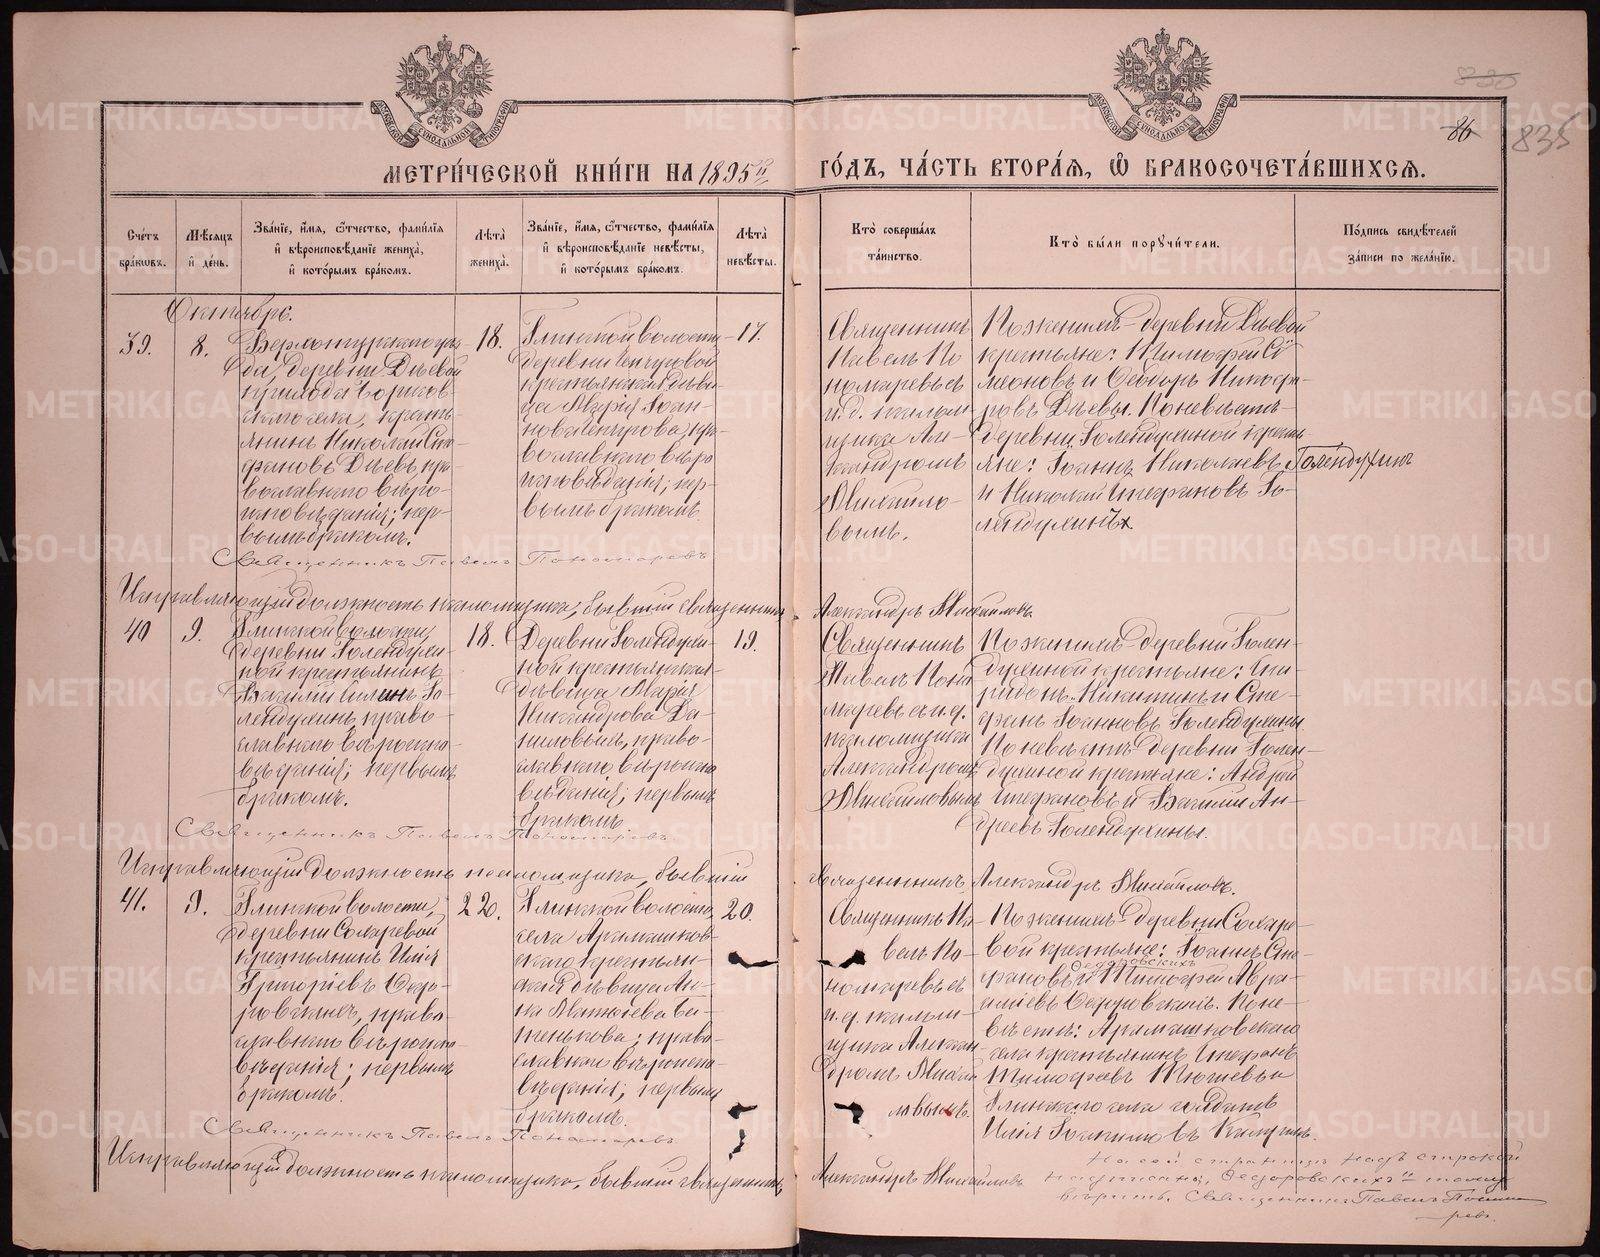 МЕТРИ́ЧЕСКОЙ КНИ́ГИ НА 1895й ГО́ДЪ, ЧА́СТЬ ВТОРА́Я, Ѽ БРАКОСОЧЕТА́ВШИХСЯ.
86
835
Сче́тъ бра́ковъ.
Мѣ́сяцъ и́ де́нь.
Зва́нїе, и́мя, ѻ́тчество, фами́лїя и́ вѣроисповѣ́данїе жениха̀, и́ кото́рымъ бра́комъ.
Лѣ́та жениха̀.
Зва́нїе, и́мя, ѻ́тчество, фами́лїя и́ вѣроисповѣ́данїе невѣ́сты, и́ кото́рымъ бра́комъ.
Лѣ́та невѣ́сты.
Кто̀ соверша́лъ та́инство.
Кто̀ бы́ли порꙋчи́тели.
По́дпись свидѣ́телей за́писи по жела́нїю.
Октябрь.
39.
8.
Верхотурскаго уѣз-
да, деревни Дѣевой
прихода
скаго села, кресть-
янинъ Николай Сте-
фановъ Дѣевъ, пра-
вославнаго вѣро-
исповѣданія; пер-
вымъ бракомъ.
18.
Глинской волости,
деревни Ченчуровой
крестьянская дѣви-
ца Марія Іоан-
нова Ченчурова, пра-
вославнаго вѣро-
исповѣданія; пер-
вымъ бракомъ.
17.
Священникъ
Павелъ По-
номаревъ съ
и.д. псалом-
щика Але-
ксандромъ
Михайло-
вымъ.
По женихѣ деревни Дѣевой
крестьяне: Тимофей Си-
меоновъ и Ѳеодоръ Никифо-
ровъ Дѣевы. По невѣстѣ
деревни Голендухиной кресть-
яне: Іоаннъ Николаевъ Голендухинъ
и Николай Стефановъ Го-
лендухинъ
Священникъ Павелъ Пономаревъ
Исправляющій должность псаломщика, бывшій священникъ Александръ Михайловъ
40
9.
Глинской волости,
деревни Голендухи-
ной крестьянинъ
Василій Го-
лендухинъ, право-
славнаго вѣроиспо-
вѣданія; первымъ
бракомъ.
18.
Деревни Голендухи-
ной крестьянская
дѣвица Марія
Никандрова Да-
нилова, право-
славнаго вѣроиспо-
вѣданія; первымъ
бракомъ.
19.
Священникъ
Павелъ Поно-
маревъ съ и.д.
псаломщика
Александромъ
Михайловымъ
По женихѣ деревни Голен-
духиной крестьяне: Спи-
ридонъ Никитинъ и Сте-
фанъ Іоанновъ Голендухины.
По невѣстѣ деревни Голен-
духиной крестьяне: Андрей
Стефановъ и Василій Ан-
дреевъ Голендухины.
Священникъ Павелъ Пономаревъ
Исправляющій должность псаломщика, бывшій священникъ Александръ Михайловъ.
41.
9.
Глинской волости,
деревни Сохаревой
крестьянинъ Илія
Григоріевъ Ѳедо-
ровскихъ, право-
славнаго вѣроиспо-
вѣданія; первымъ
бракомъ.
22.
Глинской волости,
села Арамашков-
скаго крестьян-
ская дѣвица Ан-
на
право-
славнаго вѣроиспо-
вѣданія; первымъ
бракомъ.
20.
Священникъ Па-
велъ По-
номаревъ съ
и.д. псалом-
щика Алексан-
дромъ Михай-
ловымъ.
По женихѣ деревни Сохаре-
вой крестьяне: Іоаннъ Сте-
Ѳедоровскихъ
фановъ и Тимофей Авра-
аміевъ Ѳедоровскихъ. По не-
вѣстѣ: Арамашковскаго
села крестьянинъ Стефанъ
Тимофеевъ
Глинскаго села солдатъ
Илія
Священникъ Павелъ Пономаревъ
Исправляющій должность псаломщика, бывшій священникъ Александръ Михайловъ
На сей страницѣ надъ строкой
надписано „Ѳедоровскихъ" тому
вѣрить. Священникъ Павелъ Понома-
ревъ.
METRIKI.GASO-URAL.RU